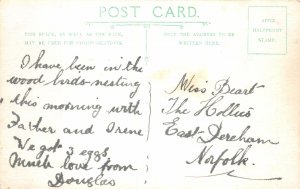 POST CARD.
THIS SPACE, AS WELL AS THE BACK,
MAY BE USED FOR COMMUNICATION.
ONLY THE ADDRESS TO BE
WRITTEN HERE.
AFFIX
HALFPENNY
STAMP.
I have been in the
wood birds-nesting
this morning with
Father and Irene
We got 3 eggs
Much love from
Douglas
Miss Beart
The Hollies
East Dereham
Norfolk.